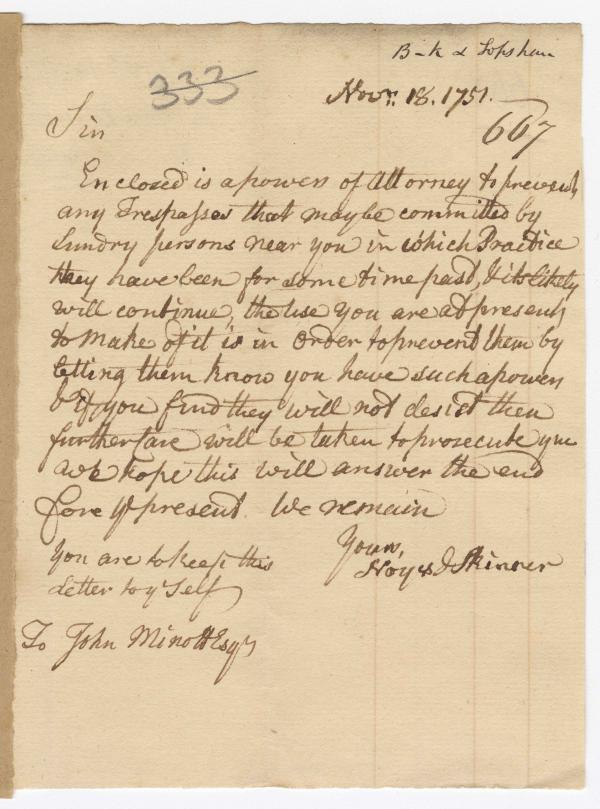 B-k & Topsham
333
Novr. 18. 1751.
667
Sir
Enclosed is a power of Attorney to prevent
any Trespasses that may be committed by
Sundry persons near you in which Practice
they have been for some time past, & its likely
will continue, the use you are at present
to make of it is in order to prevent them by
letting them know you have such a power
& if you find they will not desist then
further Care will be taken to prosecute ym
We hope this will answer the end
fore ye present. We remain
Yours,
Noyes & Skinner
You are to keep this
Letter to yr Self
To John Minott Esqr